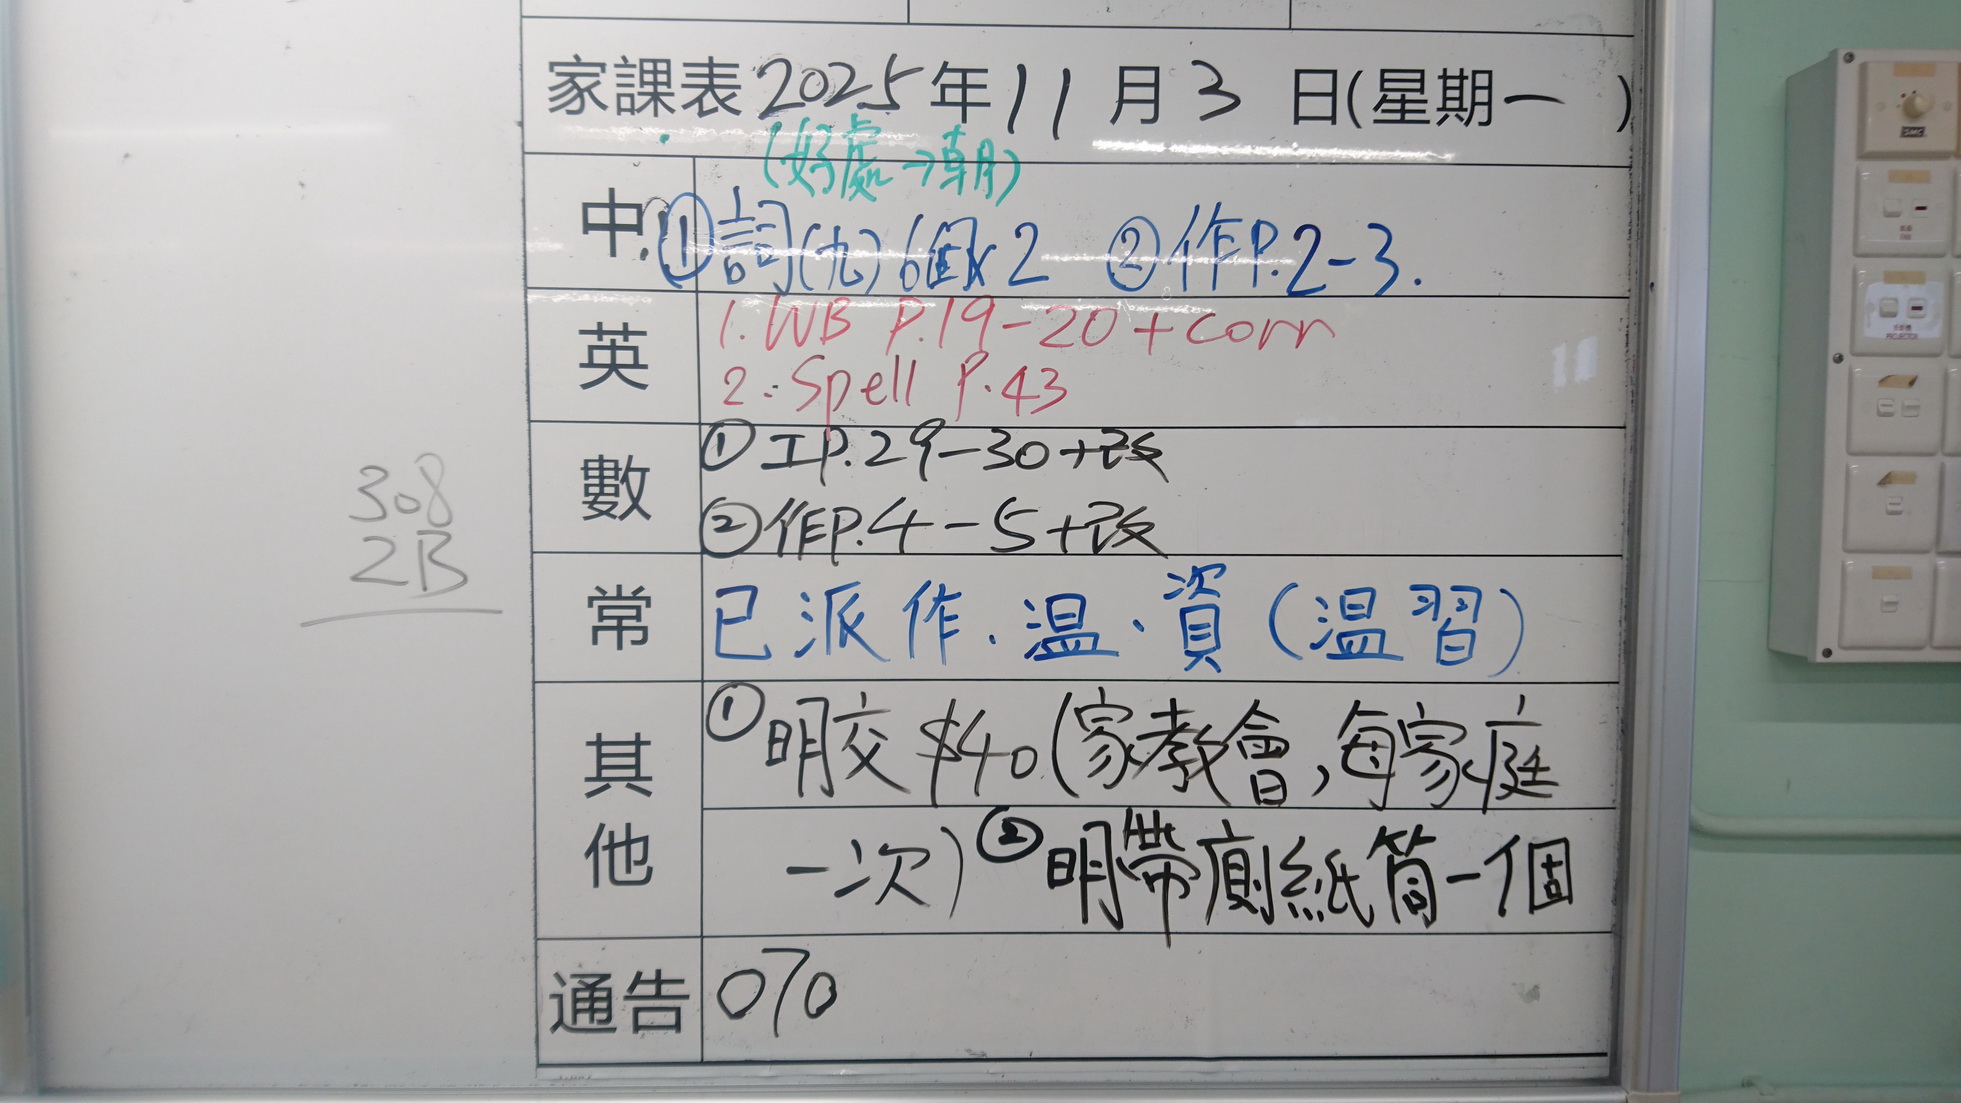 家課表2025年11月3日(星期一)
(好處→朝)
中 ①詞(九)6個x2 ②作P.2-3.
英 1. WB P.19-20+corr
2. Spell P.43
數 ①工P.29-30+改
②作P.4-5+改
308
2B
常 已派作、溫、資(溫習)
其他 ①明交$40(家教會,每家庭
一次) ②明帶廁紙筒一個
通告 070